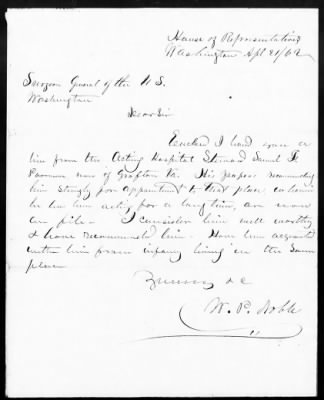 House of Representatives
Washington Apl 21/62
Surgeon Genral of the U.S.
Washington
Dear Sir
Enclosed I hand you a
line from the Acting Hospital Steward Samuel
now of Grafton Va. His papers recommending
him strongly for appointment to that place in which
he has been acting for a long time, are now
on file. I consider him well worthy
& have recommended him. Have been acquainted
with him from infancy living in the same
place
Yours &c
W. P. Noble